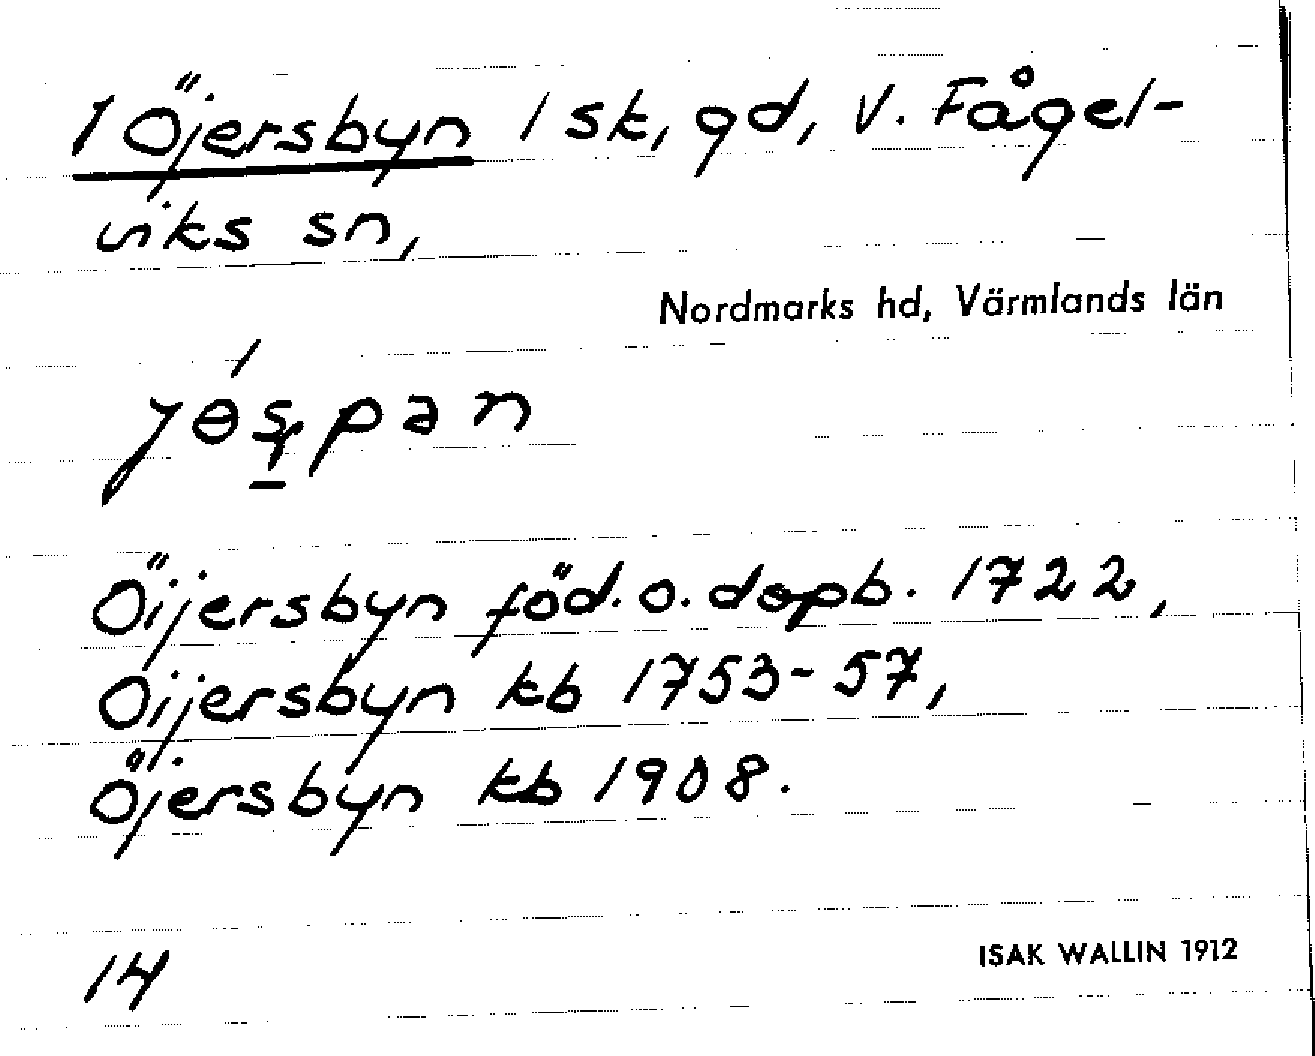 1 Öjersbyn 1 sk, gd, V. Fågel-
viks sn,
Nordmarks hd, Värmlands län
Öijersbyn föd. o. dopb. 1722,
Oijersbyn kb 1753-57,
Öjersbyn kb 1908.
14
ISAK WALLIN 1912